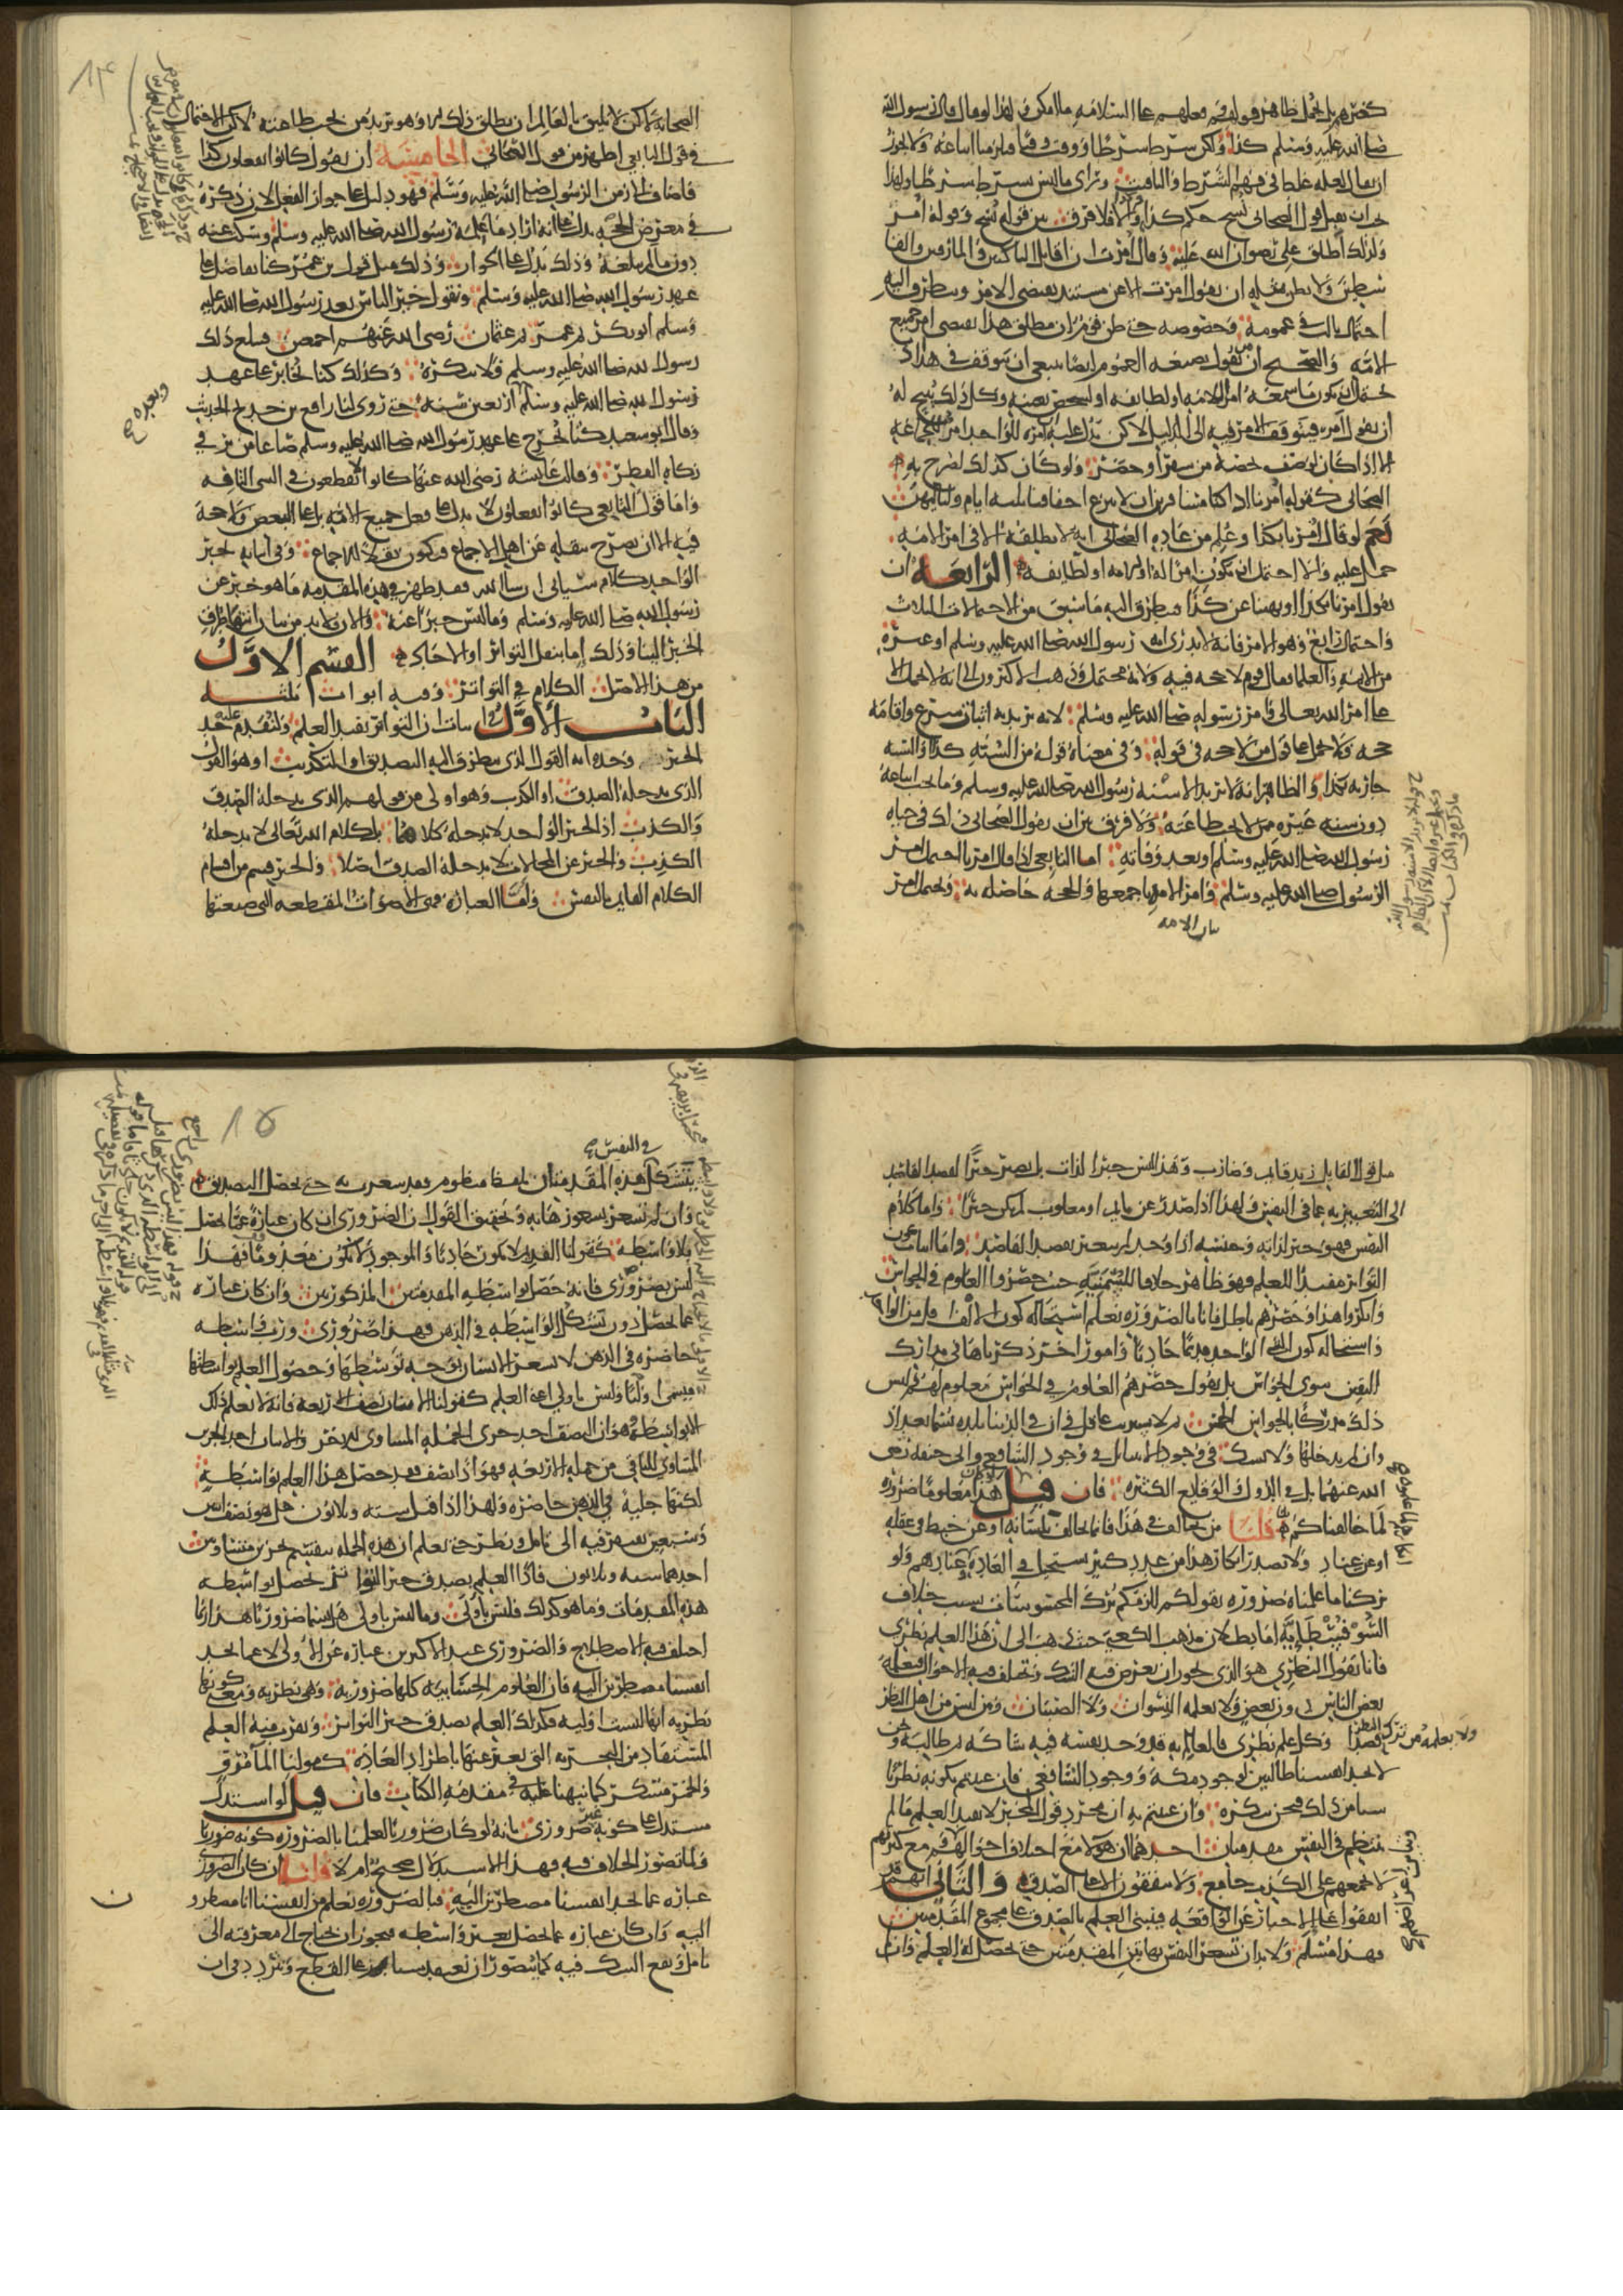 كخبرهم بل نحمل ظاهر قولهم وفعلهم على السلامة ما أمكن ولهذا لو قال قال رسول الله
صلى الله عليه وسلم كذا ولكن بشرط شرطا ووقت وقتا فيلزمنا اتباعه ولا يجوز
ان يقال لعله غلط في فهم الشرط والتاقيت ورأى ما ليس بشرط شرطا ولهذا
يجب ان يقبل قول الصحابي نسخ حكم كذا والا فلا فرق بين قوله نسخ وقوله أمر
ولذلك أطلق علي رضوان الله عليه وقال أمرت ان اقاتل الناكثين والمارقين والقا
سطين ولا يظن بمثله ان يقول امرت الا عن مستند يقتضي الامر ويتطرق اليه
احتمال ثالث في عمومه وخصوصه حتى ظن قوم ان مطلق هذا يقتضي امر جميع
الامة والصحيح ان من يقول بصيغة العموم ايضا ينبغي ان يتوقف في هذا اذ
يحتمل ان يكون ما سمعه امرا للامة او لطائفة او لشخص بعينه وكل ذلك يبيح له
ان يقول أمر فيتوقف الامر فيه الى الدليل لاكن يدل عليه ان امره للواحد امر للجماعة
الا اذا كان لوصف خصه من سفر أو حضر ولو كان كذلك لصرح به
الصحابي كقوله امرنا اذا كنا مسافرين ان لا ننزع اخفافنا ثلثة ايام ولياليهن
نعم لو قال أمرنا بكذا وعلم من عادة الصحابي انه لا يطلقه الا في امر الامة
حمل عليه والا احتمل ان يكون امرا له او للامة او لطائفة الرابعة ان
يقول امرنا بكذا او نهينا عن كذا فيتطرق اليه ما سبق من الاحتمالات الثلاث
واحتمال رابع وهو الامر فانه لا يدرى انه رسول الله صلى الله عليه وسلم او غيره
من الايمة والعلما فقال قوم لا حجة فيه ولانه محتمل وذهب الاكثرون الى انه لا يحمل الا
على امر الله تعالى وامر رسوله صلى الله عليه وسلم لانه يريد به اثبات شرع واقامة
حجة ولا يحمل على قول من لا حجة في قوله وفي معناه قوله من السنة كذا والسنة
جارية بكذا والظاهر انه لا يريد الا سنة رسول الله صلى الله عليه وسلم وما يجب اتباعه
دون سنة غيره ممن لا يجب طاعته ولا فرق بين ان يقول الصحابي ذلك في حياة
رسول الله صلى الله عليه وسلم او بعد وفاته اما التابعي اذا قال امرنا احتمل امر
الرسول صلى الله عليه وسلم وامر الامة باجمعها والحجة حاصلة به ويحتمل امر
الصحابة لاكن لا يليق بالعالم ان يطلق ذلك الا وهو يريد من تجب طاعته لاكن الاحتمال
في قول التابعي اظهر من قول الصحابي الخامسة ان يقول كانوا يفعلون كذا
فاضاف ذلك الى زمن الرسول صلى الله عليه وسلم فهو دليل على جواز الفعل لان ذكره
في معرض الحجة يدل على انه اراد ما علمه رسول الله صلى الله عليه وسلم وسكت عنه
دون ما لم يبلغه وذلك يدل على الجواز وذلك مثل قول ابن عمر كنا نفاضل على
عهد رسول الله صلى الله عليه وسلم ونقول خير الناس بعد رسول الله صلى الله عليه
وسلم ابو بكر ثم عمر ثم عثمان رضي الله عنهم اجمعين فيبلغ ذلك
رسول الله صلى الله عليه وسلم فلا ينكره وكذلك كنا نخابر على عهد
رسول الله صلى الله عليه وسلم أربعين سنة حتى روى لنا رافع بن خديج الحديث
وقال ابو سعيد كنا نخرج على عهد رسول الله صلى الله عليه وسلم صاعا من بر في
زكاة الفطر وقالت عايشة رضي الله عنها كانوا لا يقطعون في الشي التافه
واما قول التابعي كانوا يفعلون لا يدل على فعل جميع الامة بل على البعض ولا حجة
فيه الا ان يصرح بنقله عن اهل الاجماع فيكون نقلا للاجماع وفي اثباته بخبر
الواحد كلام سياتي ان شا الله فقد ظهر في هذه المقدمة ما هو خبر عن
رسول الله صلى الله عليه وسلم وما ليس خبرا عنه والان فلا بد من بيان انتها طرف
الخبر الينا وذلك إما بنقل التواتر او الآحاد القسم الاول
من هذا الاصل الكلام في التواتر وفيه ابواب ثلثة
الباب الأول في اثبات ان التواتر يفيد العلم ولنقدم عليه حد
الخبر وحده انه القول الذي يتطرق اليه التصديق او التكذيب او هو القول
الذي يدخله الصدق او الكذب وهو اولى من قولهم الذي يدخله الصدق
والكذب اذ الخبر الواحد لا يدخله كلاهما بل كلام الله تعالى لا يدخله
الكذب والخبر عن المحالات لا يدخله الصدق أصلا والخبر قسم من اقسام
الكلام القايم بالنفس وأما العبارة فهي الأصوات المقطعة التي صيغتها
مثل قول القايل زيد قايم وضارب وهذا ليس خبرا لذاته بل يصير خبرا لقصد القاصد
الى التعبير به عما في النفس ولهذا اذا صدر عن نايم او مغلوب لم يكن خبرا واما كلام
النفس فهو خبر لذاته وجنسه اذا وجد لم يتغير بقصد القاصد واما اثبات كون
التواتر مفيدا للعلم فهو ظاهر خلافا للسمنية حيث حصروا العلوم في الحواس
وانكروا هذا وحصرهم باطل فانا بالضرورة نعلم استحالة كون الالف اقل من الواحد
واستحالة كون الشي الواحد قديما حادثا وامورا أخر ذكرناها في مدارك
اليقين سوى الحواس بل نقول حصرهم العلوم في الحواس معلوم لهم وليس
ذلك مدركا بالحواس الخمس ثم لا يستريب عاقل في ان في الدنيا بلدة تسمى بغداذ
وان لم يدخلها ولا نشك في وجود الانبيا بل في وجود الشافعي وابي حنيفة رضي
الله عنهما بل في الدول والوقايع الكثيرة فان قيل لو كان هذا معلوما ضرورة
لما خالفناكم قلنا من يخالف في هذا فانما يخالف بلسانه او عن خبط في عقله
او عن عناد ولا يصدر انكار هذا من عدد كثير يستحيل في العادة عنادهم ولو
تركنا ما علمناه ضرورة بقولكم للزمكم ترك المحسوسات بسبب خلاف
السوفسطائية اما بطلان مذهب الكعبي حيث ذهب الى ان هذا العلم نظري
فانا نقول النظري هو الذي يجوز ان يعرض فيه الشك وتختلف فيه الاحوال فيعلمه
بعض الناس دون بعض ولا يعلمه النسوان ولا الصبيان ومن ليس من اهل النظر
ولا يعلمه من ترك النظر قصدا وكل علم نظري فالعالم به قد يجد نفسه فيه شاكا ثم طالبا ونحن
لا نجد انفسنا طالبين لوجود مكة ووجود الشافعي فان عنيتم بكونه نظريا
شيا من ذلك فنحن ننكره وان عنيتم به ان مجرد قول المخبر لا يفيد العلم ما لم
ينتظم في النفس مقدمتان احداهما ان هؤلا مع اختلاف احوالهم مع كثرتهم
لا يجمعهم على الكذب جامع ولا يتفقون الا على الصدق والثاني انهم قد
اتفقوا على الاخبار عن الواقعة فيبتنى العلم بالصدق على مجموع المقدمتين
فهذا مسلم ولا بد ان تشعر النفس بهاتين المقدمتين حتى يحصل له العلم وان لم
في النفس
يتشكل هذه المقدمتان بلفظ منظوم فقد شعرت به حتى حصل التصديق
وان لم تشعر بشعورها به وتحقيق القول ان الضروري ان كان عبارة عما يحصل
بلا واسطة كقولنا القديم لا يكون حادثا والموجود لا يكون معدوما فهذا
ليس بضروري فانه حصل بواسطة المقدمتين المذكورتين وان كان عبارة
عما يحصل دون تشكل الواسطة في الذهن فهذا ضروري ورب واسطة
حاضرة في الذهن لا يشعر الانسان بوجه توسطها وحصول العلم بواسطتها
فيسمى اوليا وليس باولي لغة العلم كقولنا الاثنان نصف الاربعة فانه لا يعلم ذلك
الا بواسطة وهو ان النصف احد جزوي الجملة المساوي للاخر والاثنان احد الجزوين
المساوي للثاني من جملة الاربعة فهو اذا نصف فقد حصل هذا العلم بواسطة
لكنها جلية في الذهن حاضرة ولهذا اذا قيل ستة وثلاثون هل هو نصف اثنين
وسبعين يفتقر فيه الى تامل ونظر حتى يعلم ان هذه الجملة تنقسم بجزوين متساويين
احدهما ستة وثلاثون فاذا العلم بصدق خبر التواتر يحصل بواسطة
هذه المقدمات وما هو كذلك فليس بأولي وما ليس باولي هل يسمى ضروريا هذا ربما
اختلف فيه الاصطلاح والضروري عند الاكثرين عبارة عن الاولي لا عما نجد
انفسنا مضطرين اليه فان العلوم الحسابية كلها ضرورية وهي نظرية ومعنى كونها
نظرية انها ليست اولية فكذلك العلم بصدق خبر التواتر ويقرب منه العلم
المستفاد من التجربة التي يعبر عنها باطراد العادة كقولنا الماء مرو
والخمر مسكر كما نبهنا عليه في مقدمة الكتاب فان قيل لو استدل
مستدل على كونه غير ضروري بانه لو كان ضروريا لعلمنا بالضرورة كونه ضروريا
ولما تصور الخلاف فيه فهذا الاستدلال صحيح ام لا قلنا ان كان الضروري
عبارة عما نجد انفسنا مضطرين اليه فبالضرورة نعلم من انفسنا انا مضطرون
اليه وان كان عبارة عما يحصل بغير واسطة فيجوز ان نحتاج الى معرفته الى
تامل ويقع الشك فيه كما يتصور ان نعتقد شيا على القطع ونتردد في ان